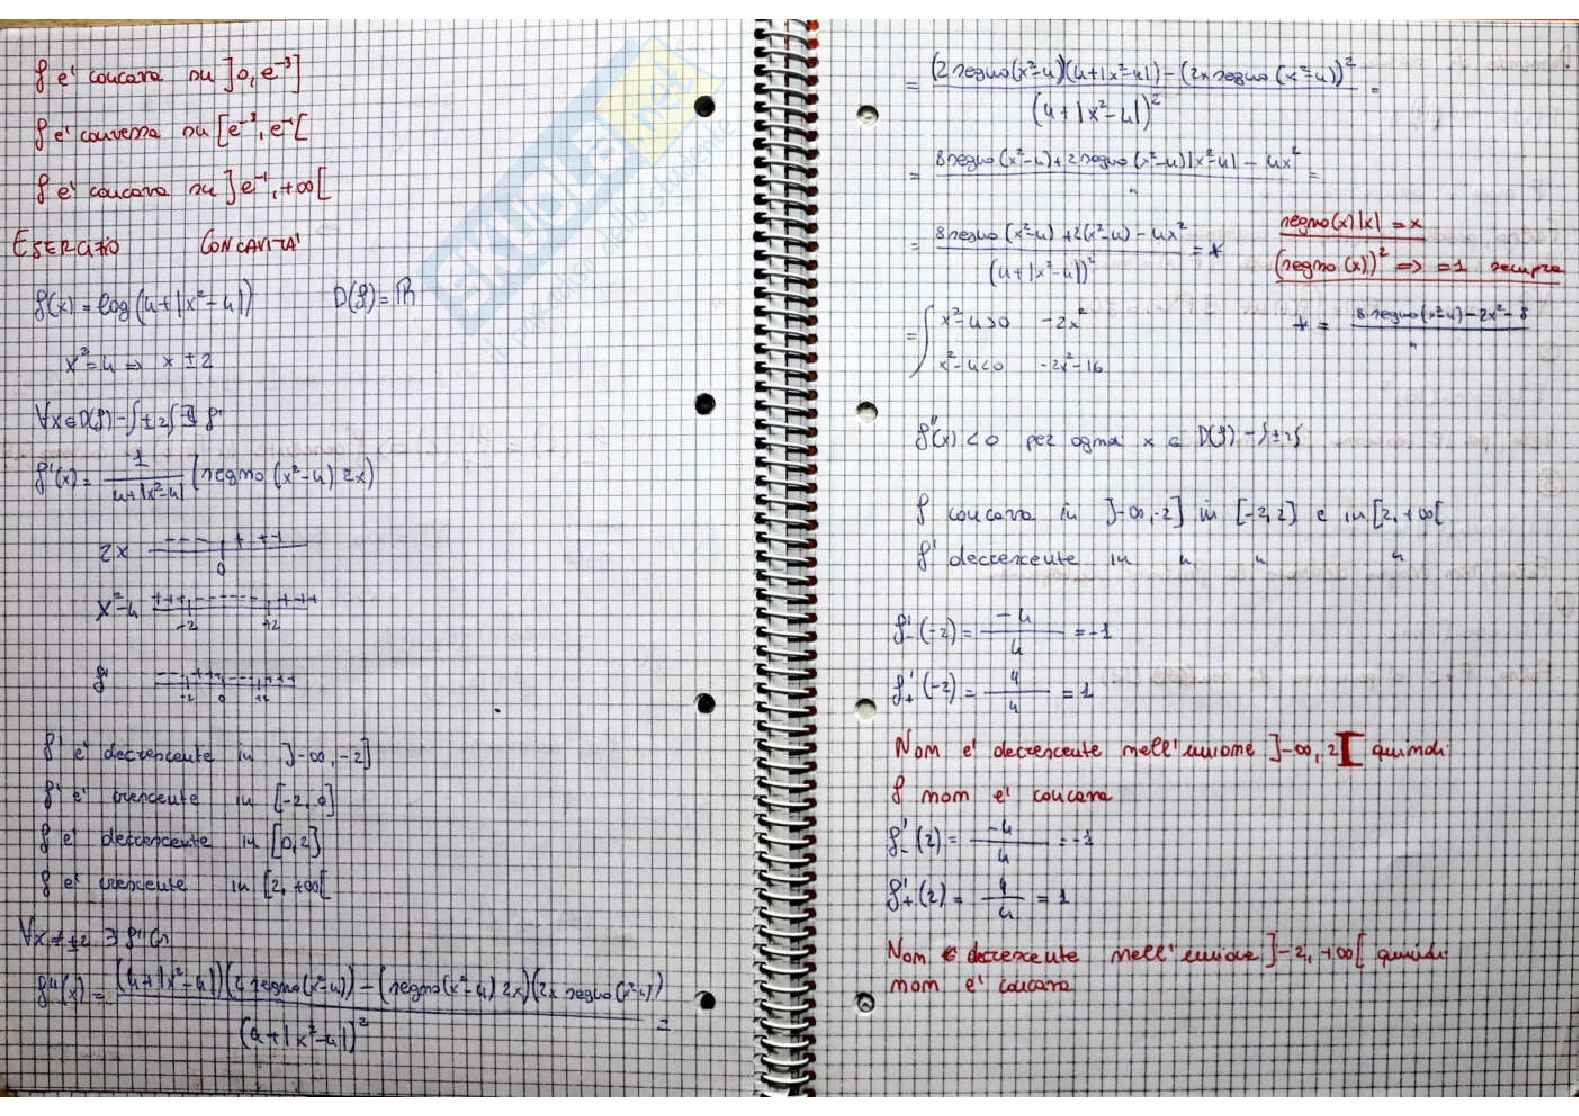 f e' concava su ]0, e⁻³]
f e' convessa su [e⁻³, e⁻¹[
f e' concava su ]e⁻¹, +∞[
ESERCIZIO CONCAVITA'
f(x) = log(4+|x²-4|) D(f) = ℝ
x²=4 => x ± 2
∀x∈D(f)-{±2} ∃ f'
f'(x) = 1/(4+|x²-4|) (segno(x²-4) 2x)
2x --- + ++
0
x²-4 +++ ------- +++
-2 +2
f' --- +++ --- +++
-2 0 +2
f e' decrescente in ]-∞, -2]
f e' crescente in [-2, 0]
f e' decrescente in [0, 2]
f e' crescente in [2, +∞[
∀x ≠ ±2 ∃ f''(x)
f''(x) = ((4+|x²-4|)(2 segno(x²-4)) - (segno(x²-4) 2x)(2x segno(x²-4)))/(4+|x²-4|)² =
= ((2 segno(x²-4)(4+|x²-4|) - (2x segno(x²-4))²)/(4+|x²-4|)² =
= (8 segno(x²-4) + 2 segno(x²-4)|x²-4| - 4x²)/" =
= (8 segno(x²-4) + 2(x²-4) - 4x²)/(4+|x²-4|)² = *
segno(x)|x| = x
(segno(x))² => =1 sempre
= { x²-4>0 -2x²
x²-4<0 -2x²-16
* = (8 segno(x²-4) - 2x² - 8)/"
f''(x) < 0 per ogni x ∈ D(f) - {±2}
f concava in ]-∞, -2] in [-2, 2] e in [2, +∞[
f' decrescente in " " "
f'₋(-2) = -4/4 = -1
f'₊(-2) = 4/4 = 1
Non e' decrescente nell'unione ]-∞, 2[ quindi
f non e' concava
f'₋(2) = -4/4 = -1
f'₊(2) = 4/4 = 1
Non e' decrescente nell'unione ]-2, +∞[ quindi
non e' concava
SKUOLA.net